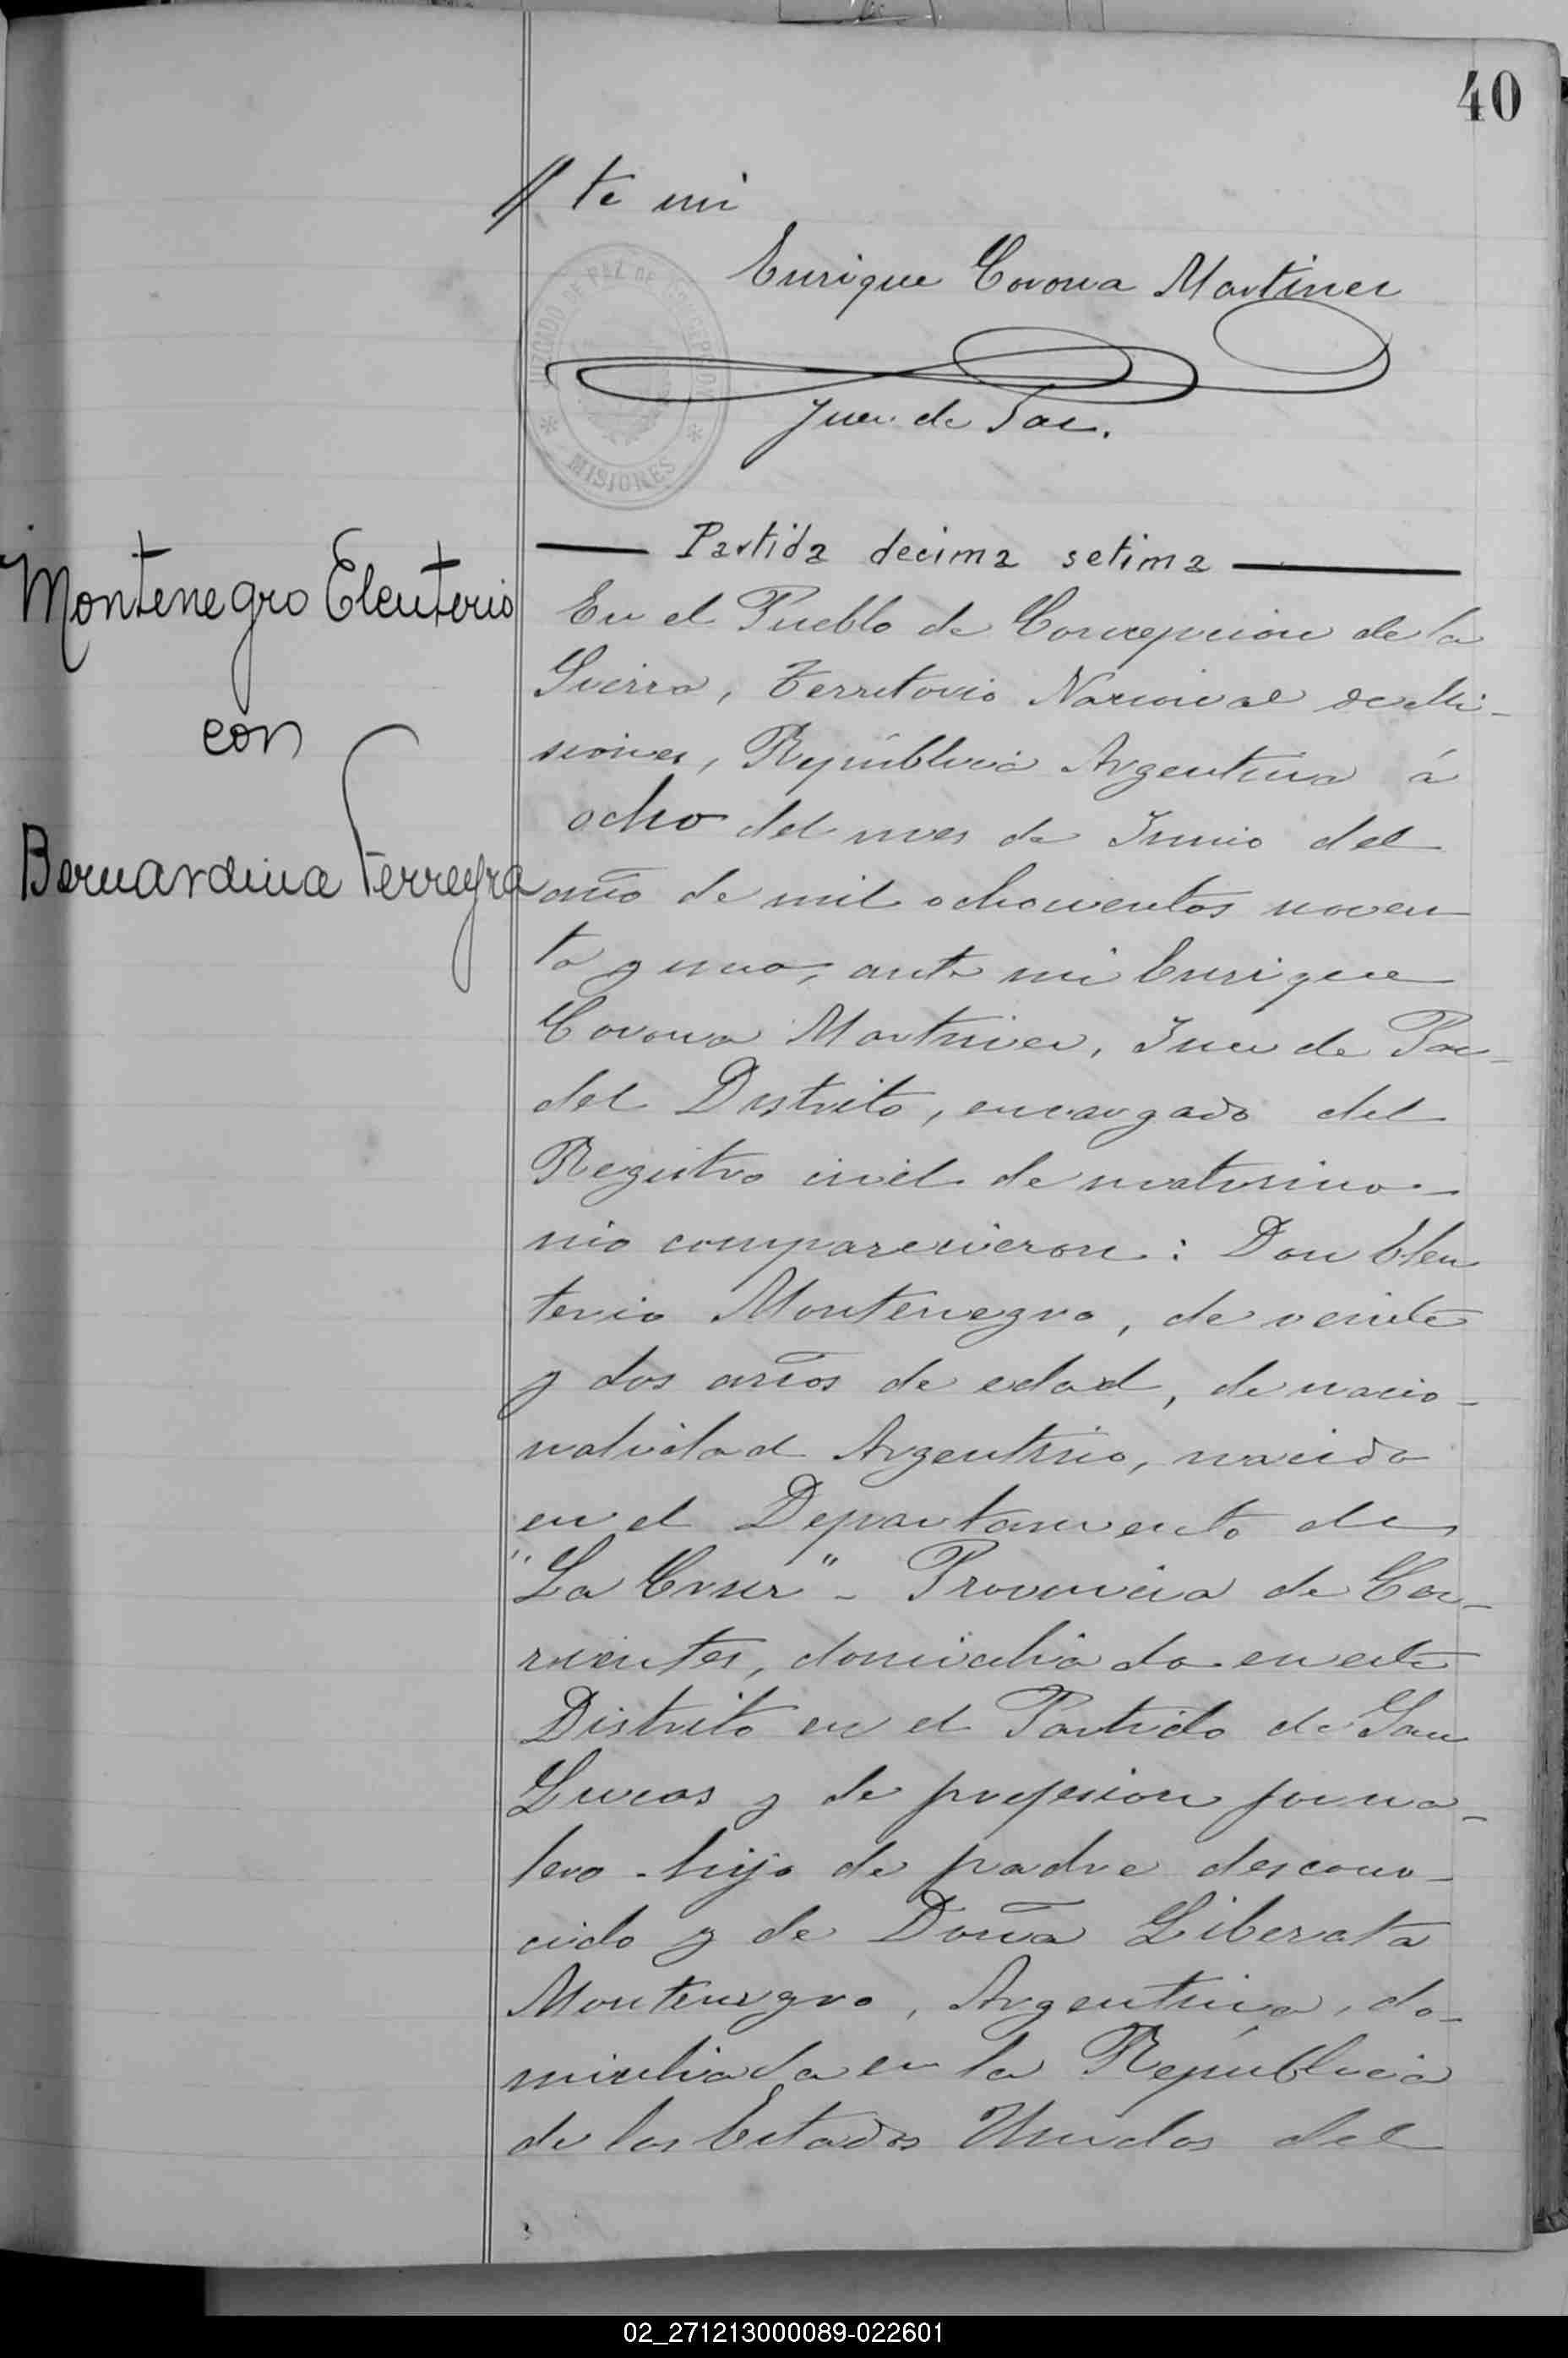 40
// te mi
Enrique Corona Martinez
JUZGADO DE PAZ DE CONCEPCION
* MISIONES *
Juez de Paz.
Partida decima setima
Montenegro Eleuterio
con
Bernardina Ferreyra
En el Pueblo de Concepcion de la
Sierra, Territorio Nacional de Mi-
siones, República Argentina á
ocho del mes de Junio del
año de mil ochocientos noven
ta y uno, ante mi Enrique
Corona Martinez, Juez de Paz
del Distrito, encargado del
Registro civil de matrimo-
nio comparecieron: Don Eleu
terio Montenegro, de veinte
y dos años de edad, de nacio-
nalidad Argentino, nacido
en el Departamento de
"La Cruz" - Provincia de Cor-
rientes, domiciliado en este
Distrito en el Partido de San
Lucas y de profesion jorna-
lero - hijo de padre descono-
cido y de Doña Liberata
Montenegro, Argentina, do-
miciliada en la República
de los Estados Unidos del
02_271213000089-022601